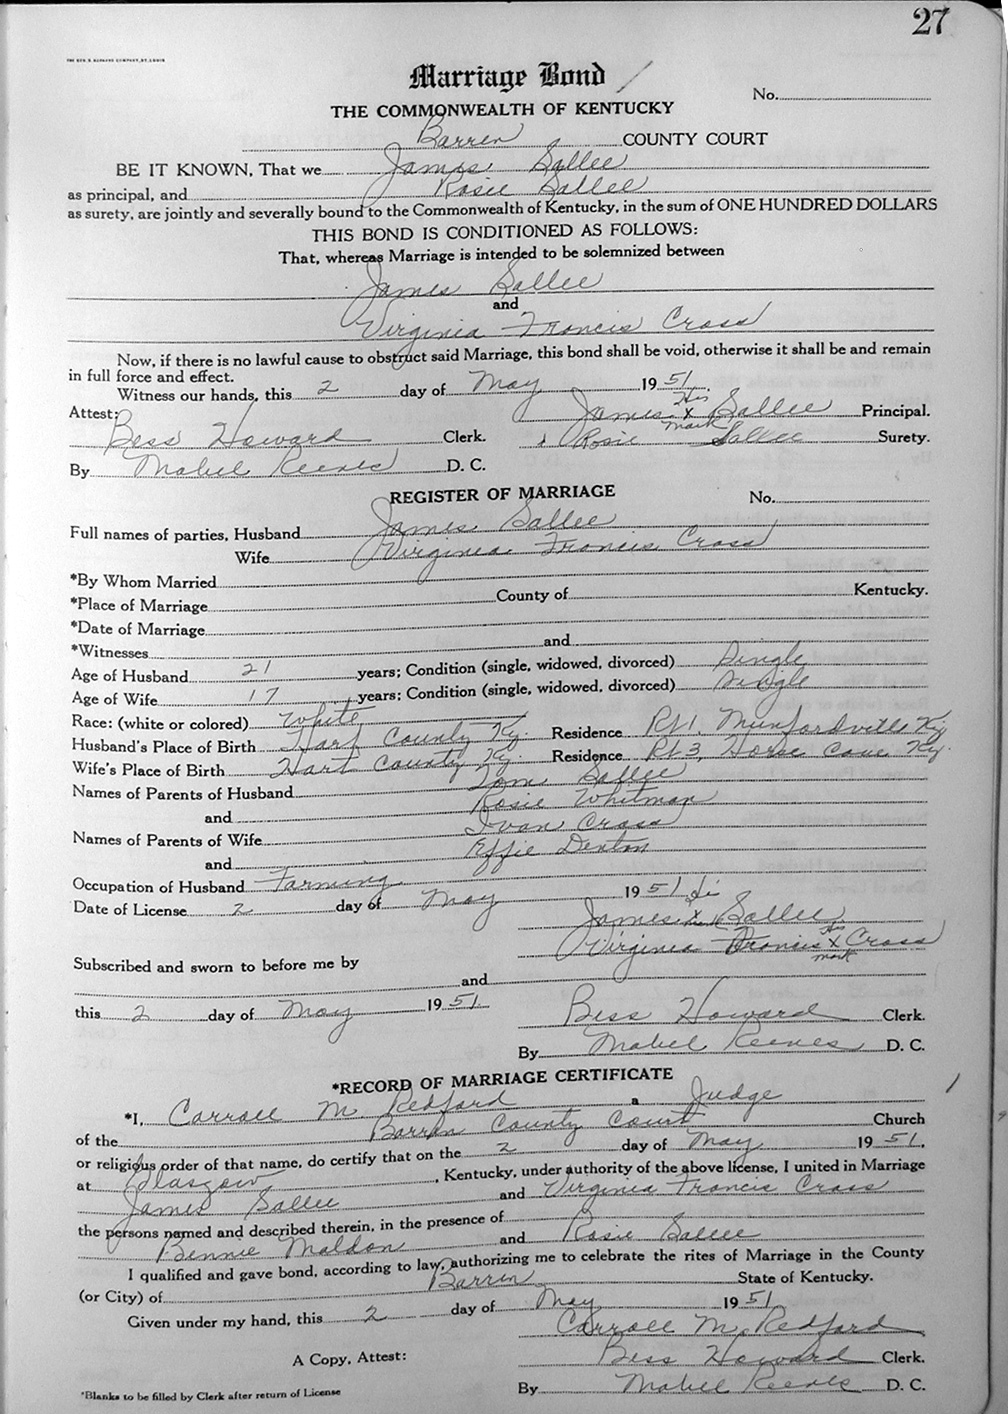 27
Marriage Bond
No.
THE COMMONWEALTH OF KENTUCKY
Barren COUNTY COURT
BE IT KNOWN, That we James Sallee
as principal, and Rosie Sallee
as surety, are jointly and severally bound to the Commonwealth of Kentucky, in the sum of ONE HUNDRED DOLLARS
THIS BOND IS CONDITIONED AS FOLLOWS:
That, whereas Marriage is intended to be solemnized between
James Sallee
and
Virginia Francis Cross
Now, if there is no lawful cause to obstruct said Marriage, this bond shall be void, otherwise it shall be and remain
in full force and effect.
Witness our hands, this 2 day of May 1951.
Attest: James His X mark Sallee Principal.
Bess Howard Clerk. Rosie Sallee Surety.
By Mabel Reeves D. C.
REGISTER OF MARRIAGE No.
Full names of parties, Husband James Sallee
Wife Virginia Francis Cross
*By Whom Married
*Place of Marriage County of Kentucky.
*Date of Marriage
*Witnesses and
Age of Husband 21 years; Condition (single, widowed, divorced) Single
Age of Wife 17 years; Condition (single, widowed, divorced) Single
Race: (white or colored) White
Husband's Place of Birth Hart County Ky. Residence Rt 1, Munfordville Ky
Wife's Place of Birth Hart County Ky. Residence Rt 3, Horse Cave Ky.
Names of Parents of Husband Tom Sallee
and Rosie Whitman
Names of Parents of Wife Ivan Cross
and Effie Denton
Occupation of Husband Farming
Date of License 2 day of May 1951
James X Sallee
Virginia Francis X mark Cross
Subscribed and sworn to before me by
and
this 2 day of May 1951. Bess Howard Clerk.
By Mabel Reeves D. C.
*RECORD OF MARRIAGE CERTIFICATE
*I, Carroll M. Redford a Judge
of the Barren County Court Church
or religious order of that name, do certify that on the 2 day of May 1951.
at Glasgow, Kentucky, under authority of the above license, I united in Marriage
James Sallee and Virginia Francis Cross
the persons named and described therein, in the presence of
Bennie Maldon and Rosie Sallee
I qualified and gave bond, according to law, authorizing me to celebrate the rites of Marriage in the County
(or City) of Barren State of Kentucky.
Given under my hand, this 2 day of May 1951
Carroll M. Redford
A Copy, Attest: Bess Howard Clerk.
*Blanks to be filled by Clerk after return of License By Mabel Reeves D. C.